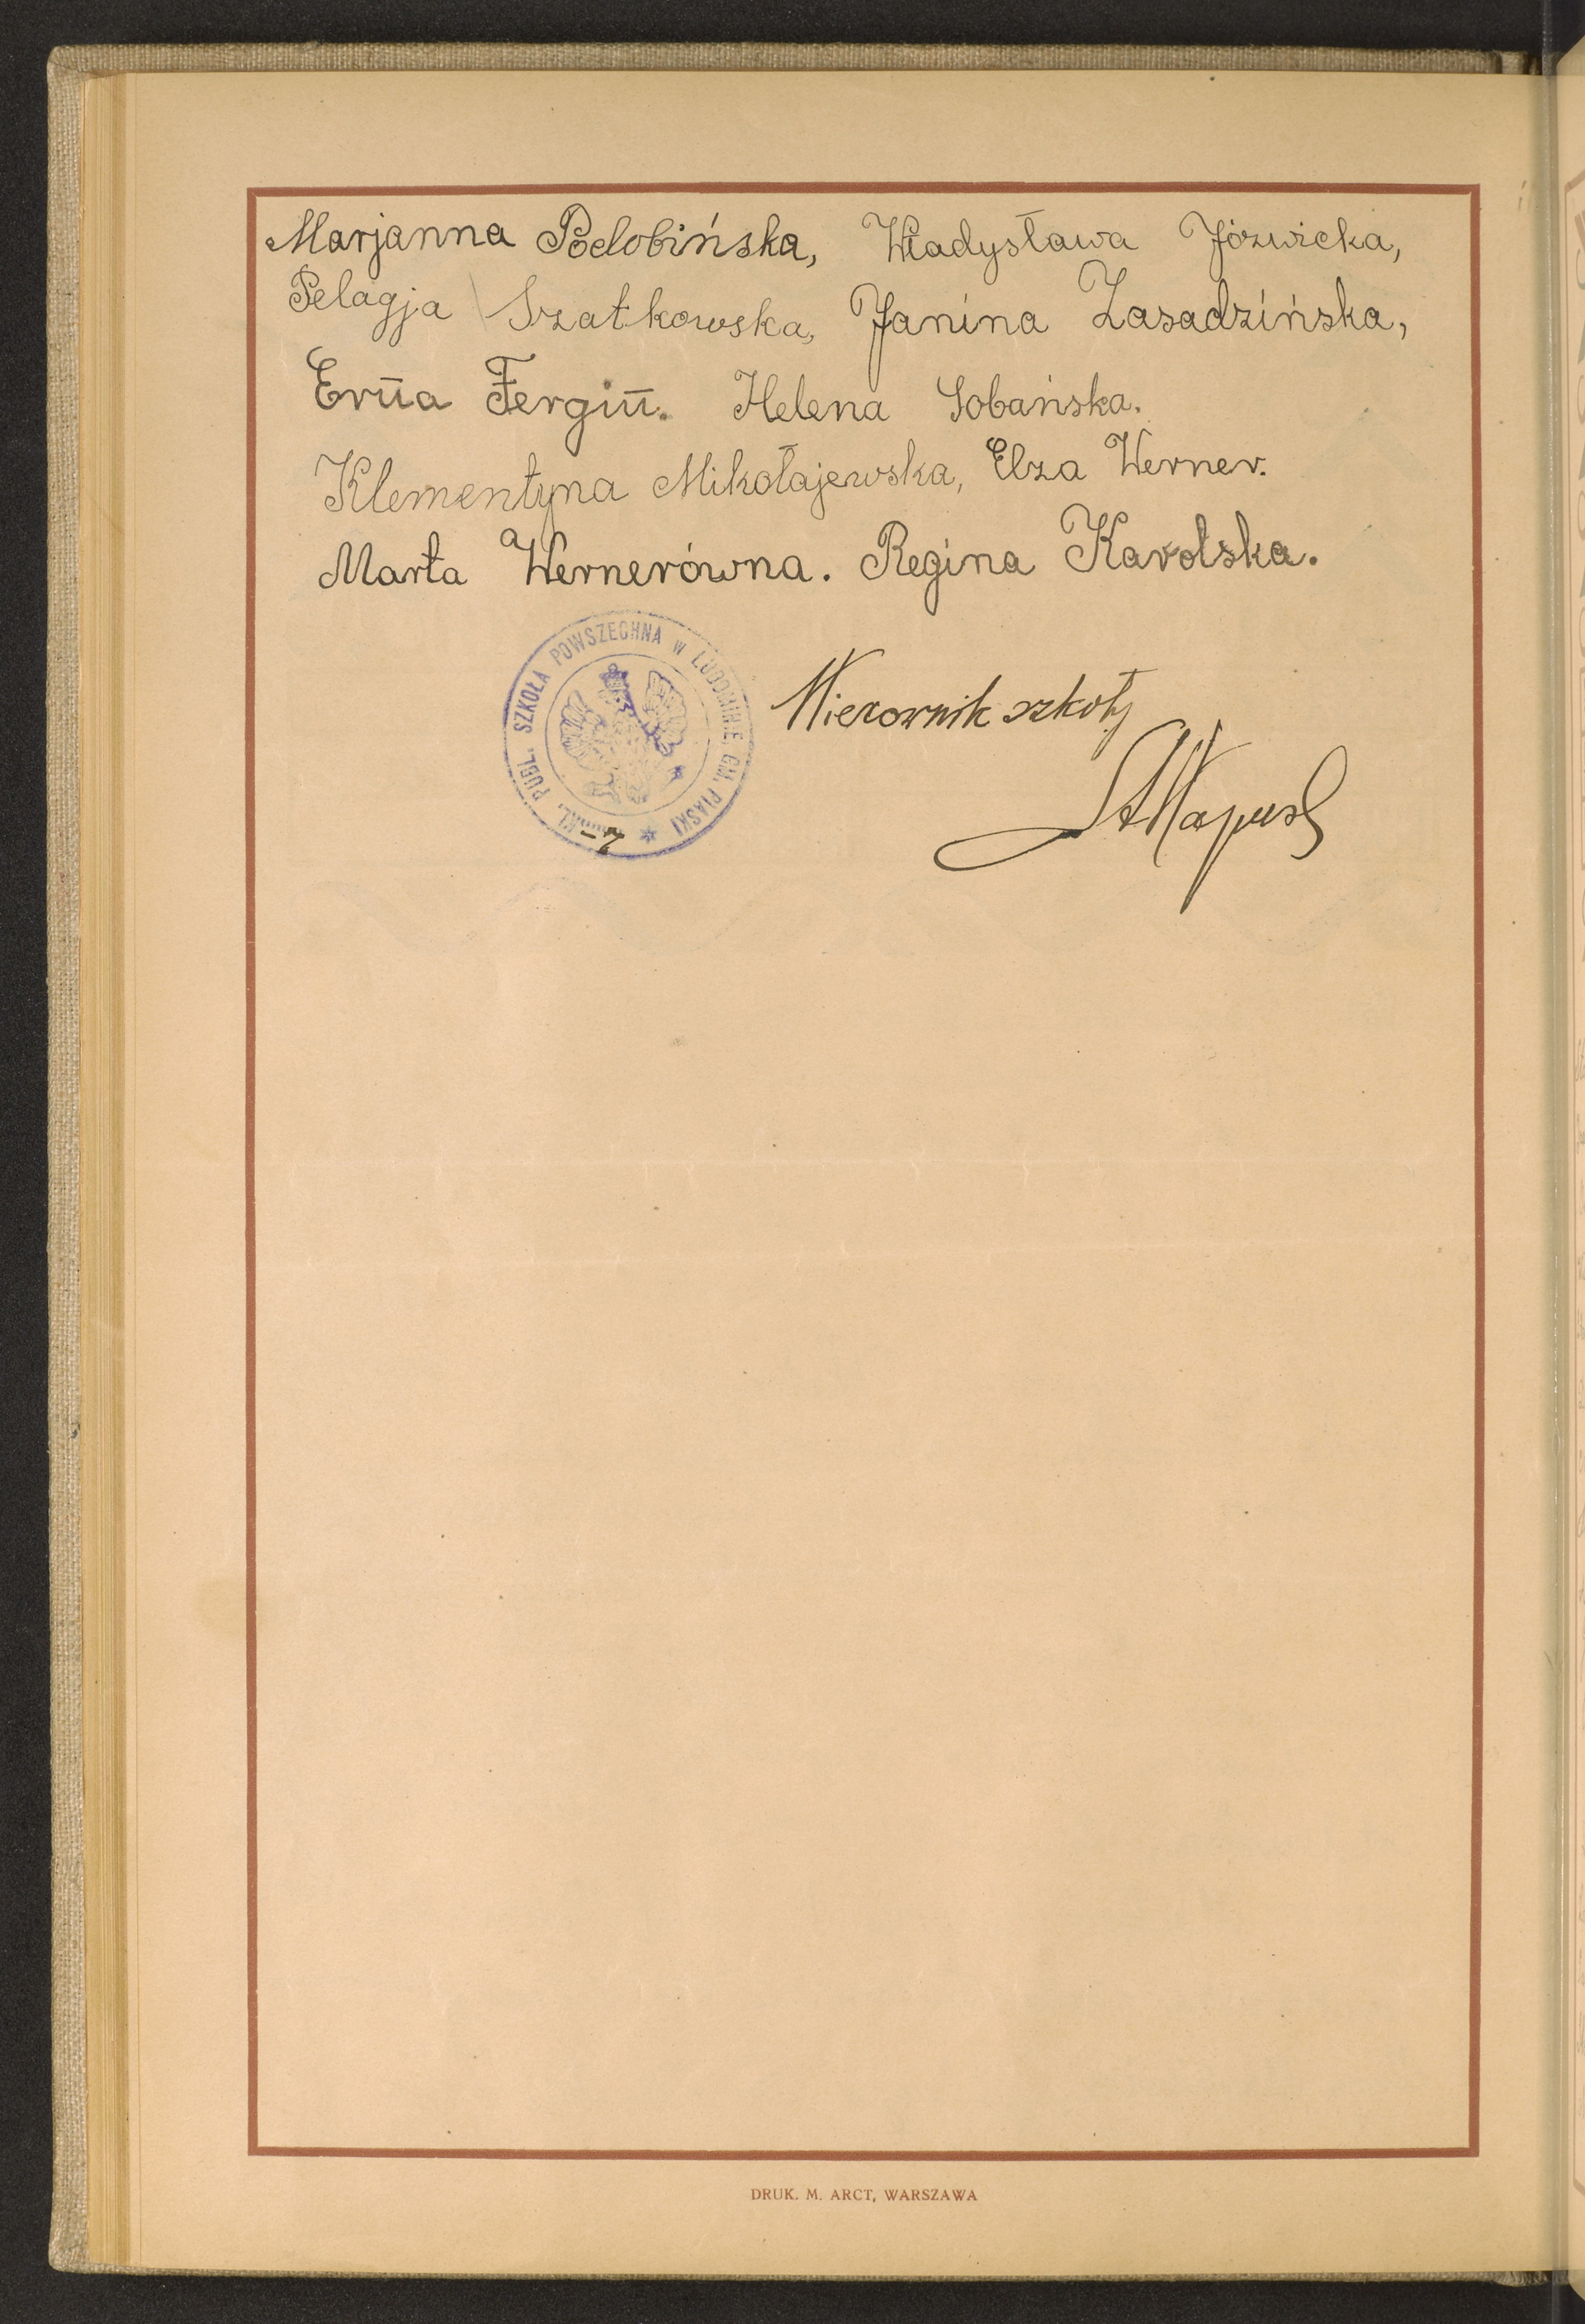 Marjanna Podobińska, Władysława Józwicka,
Pelagja Szatkowska, Janina Zasadzińska,
Erna Fergin. Helena Sobańska.
Klementyna Mikołajewska, Elza Werner.
Marta Wernerówna. Regina Karolska.
KL. PUBL. SZKOŁA POWSZECHNA w LUBOMINIE, GM. PIASKI
Kierownik szkoły
DRUK. M. ARCT, WARSZAWA